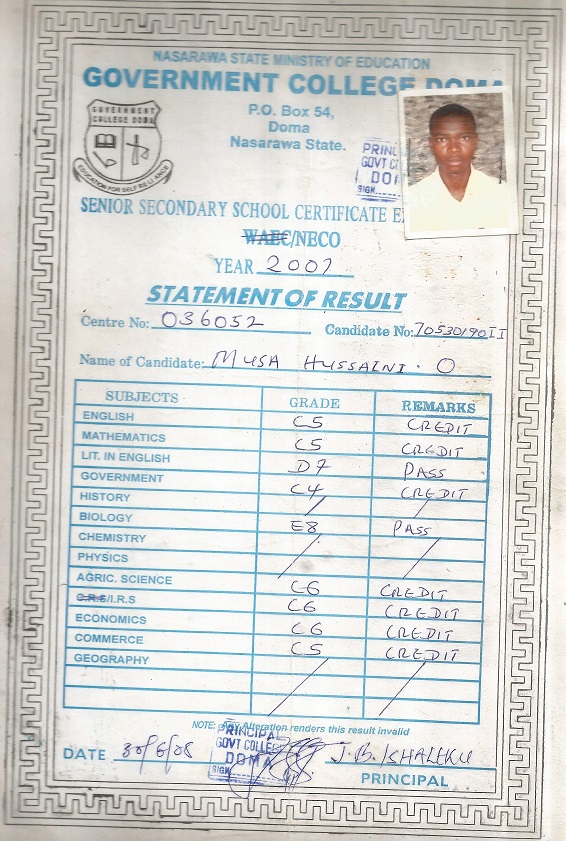 NASARAWA STATE MINISTRY OF EDUCATION
GOVERNMENT COLLEGE DOMA
GOVERNMENT COLLEGE DOMA
EDUCATION FOR SELF RELIANCE
P.O. Box 54,
Doma
Nasarawa State.
PRIN
GOVT C
DO
SIGN
SENIOR SECONDARY SCHOOL CERTIFICATE E
WAEC/NECO
YEAR 2007
STATEMENT OF RESULT
Centre No: 036052 Candidate No: 70530190II
Name of Candidate: MUSA HUSSAINI. O
SUBJECTS GRADE REMARKS
ENGLISH C5 CREDIT
MATHEMATICS C5 CREDIT
LIT. IN ENGLISH D7 PASS
GOVERNMENT C4 CREDIT
HISTORY
BIOLOGY E8 PASS
CHEMISTRY
PHYSICS
AGRIC. SCIENCE C6 CREDIT
C.R.S/I.R.S C6 CREDIT
ECONOMICS C6 CREDIT
COMMERCE C5 CREDIT
GEOGRAPHY
NOTE: Any Alteration renders this result invalid
PRINCIPAL
GOVT COLLEGE
DOMA
SIGN
DATE 30/6/08 J.B. ISHALEKU
PRINCIPAL